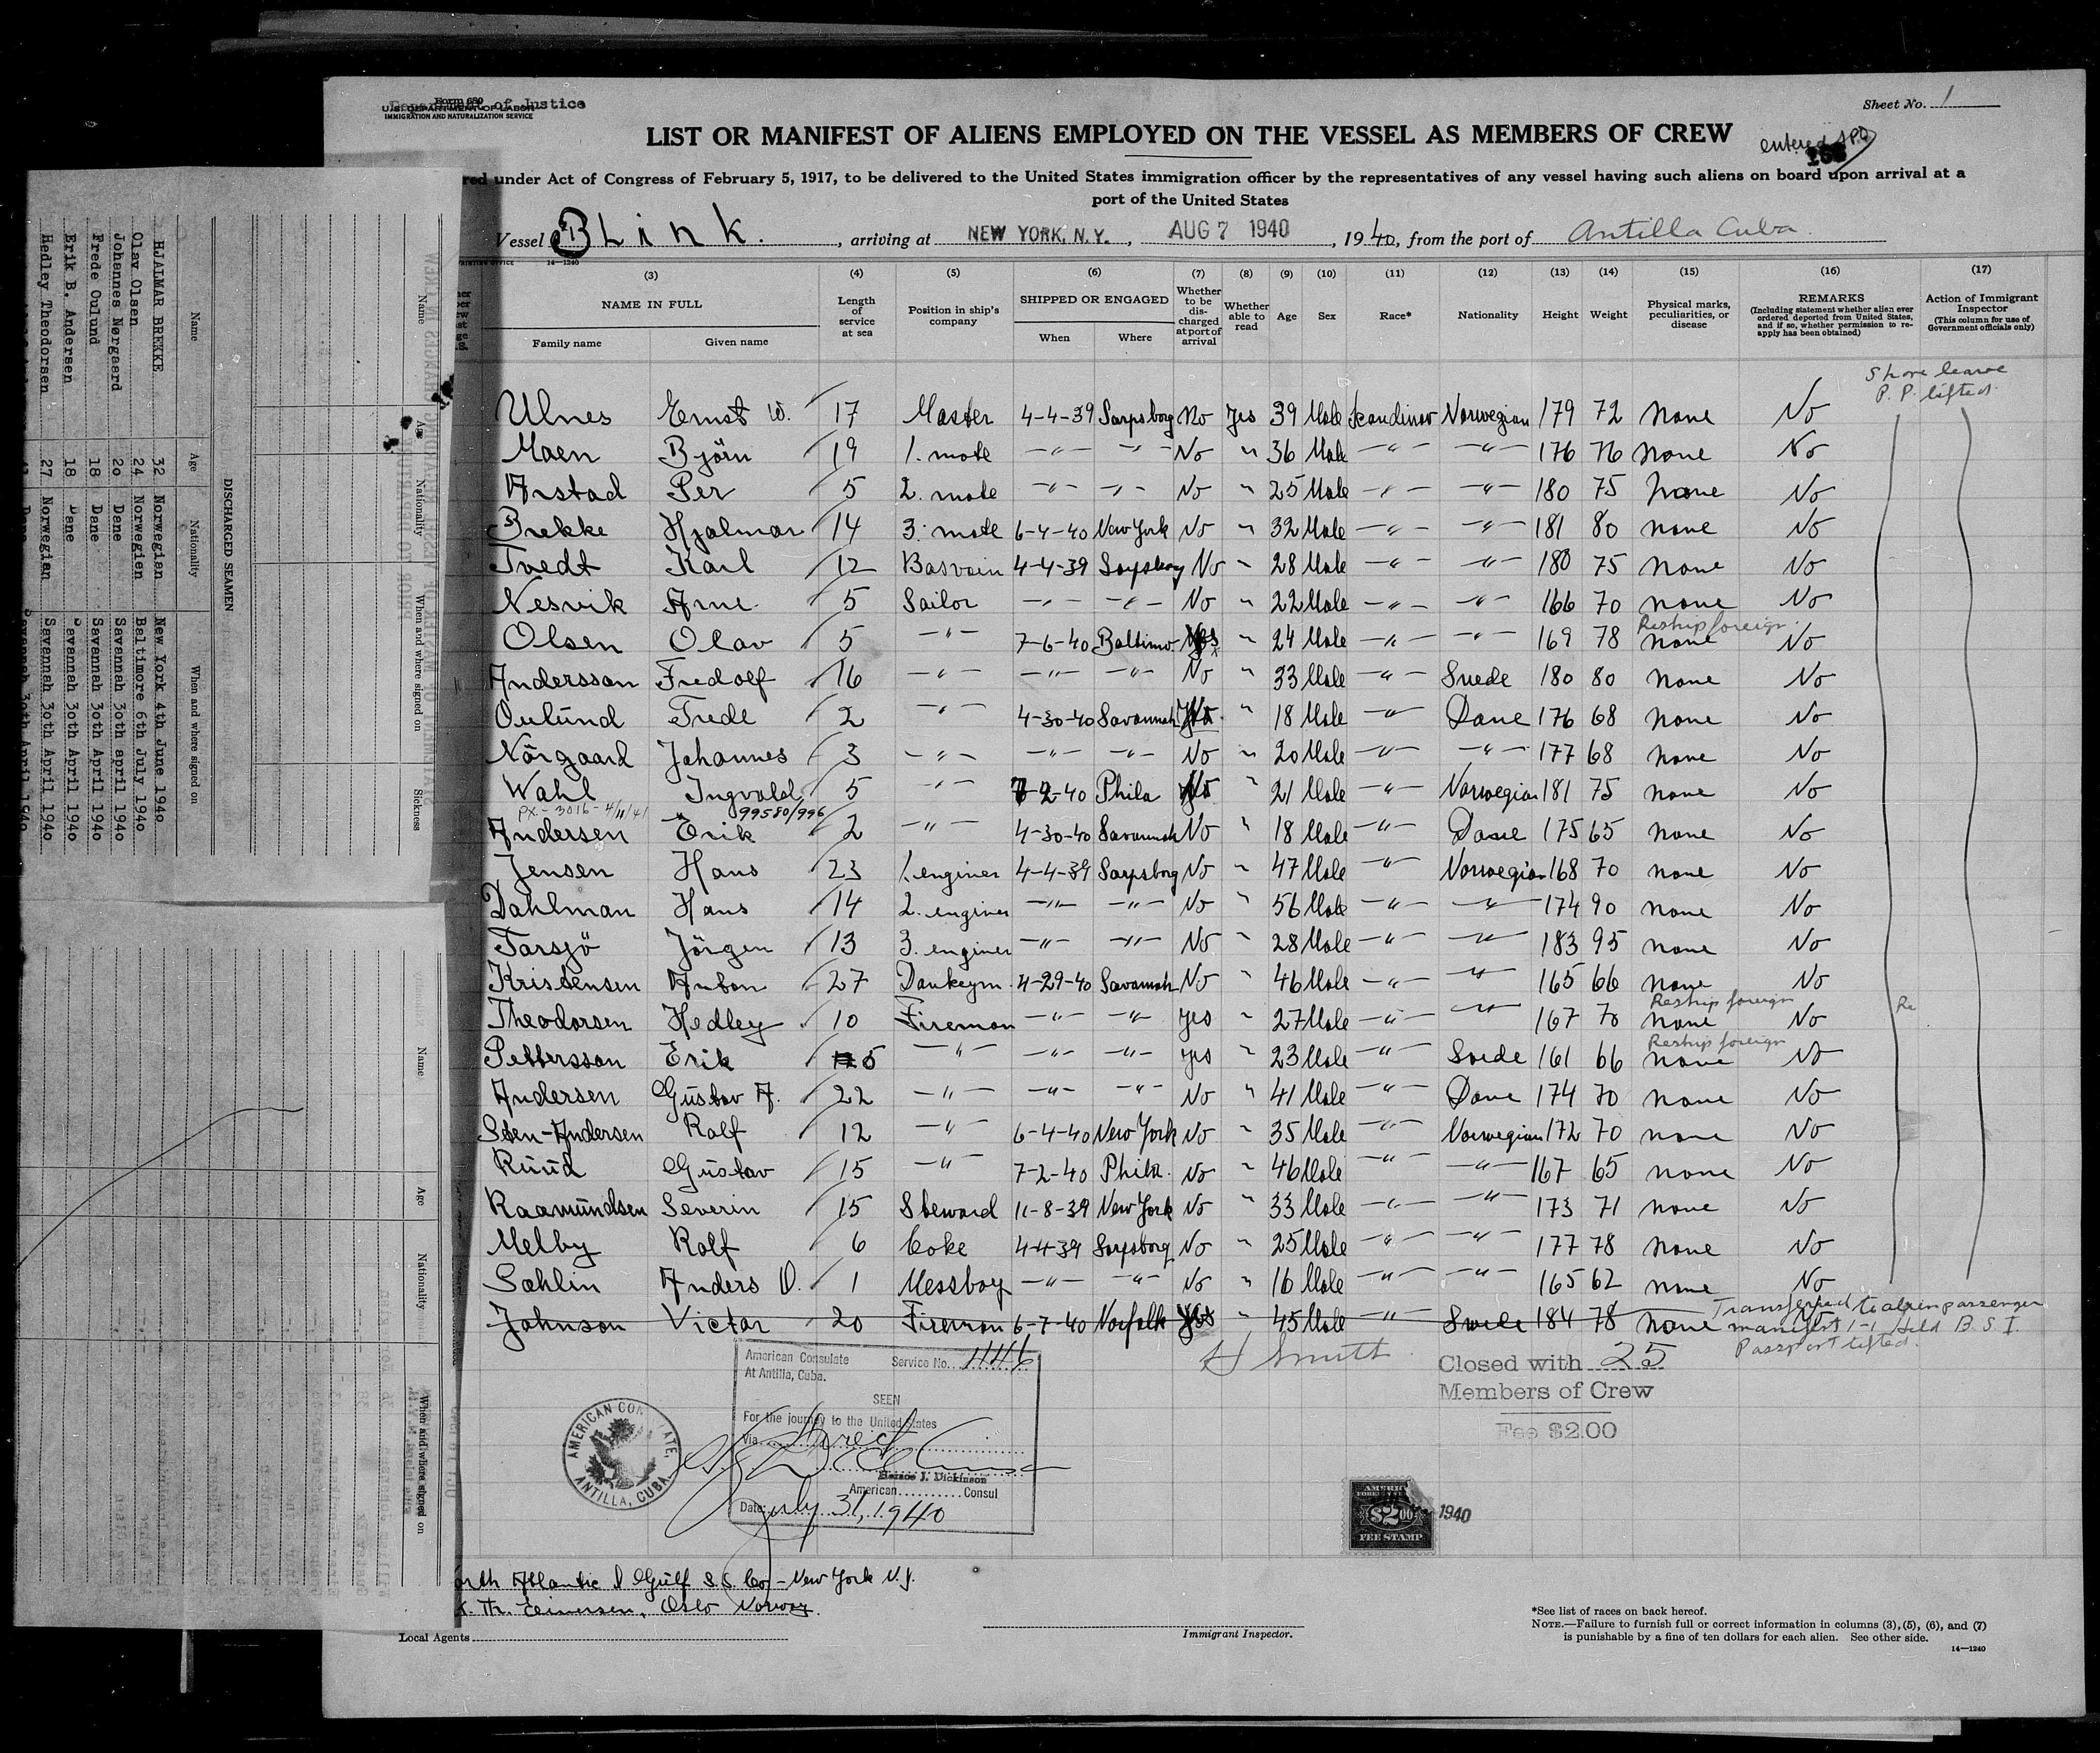 Form 680
Department of Justice
U.S. DEPARTMENT OF LABOR
IMMIGRATION AND NATURALIZATION SERVICE
Sheet No. 1
LIST OR MANIFEST OF ALIENS EMPLOYED ON THE VESSEL AS MEMBERS OF CREW
entered
red under Act of Congress of February 5, 1917, to be delivered to the United States immigration officer by the representatives of any vessel having such aliens on board upon arrival at a
port of the United States
Vessel Blink. , arriving at NEW YORK, N.Y. , AUG 7 1940 , 1940, from the port of Antilla Cuba
14—1240
(3) (4) (5) (6) (7) (8) (9) (10) (11) (12) (13) (14) (15) (16) (17)
NAME IN FULL
Family name Given name
Length of service at sea
Position in ship's company
SHIPPED OR ENGAGED
When Where
Whether to be discharged at port of arrival
Whether able to read
Age Sex Race* Nationality Height Weight
Physical marks, peculiarities, or disease
REMARKS
(Including statement whether alien ever ordered deported from United States, and if so, whether permission to reapply has been obtained)
Action of Immigrant Inspector
(This column for use of Government officials only)
Shore leave
P. P. lifted
Ulnes Ernst W. 17 Master 4-4-39 Sarpsborg No Yes 39 Male Scandinav Norwegian 179 72 none No
Moen Björn 19 1. mate -"- -"- No " 36 Male -"- -"- 176 76 none No
Arstad Per 5 2. mate -"- -"- No " 25 Male -"- -"- 180 75 none No
Brekke Hjalmar 14 3. mate 6-4-40 New York No " 32 Male -"- -"- 181 80 none No
Tvedt Karl 12 Bosvain 4-4-39 Sarpsborg No " 28 Male -"- -"- 180 75 none No
Nesvik Arne 5 Sailor -"- -"- No " 22 Male -"- -"- 166 70 none No
Reship foreign
Olsen Olav 5 -"- 7-6-40 Baltimo. Yes " 24 Male -"- -"- 169 78 none No
Andersson Fredolf 16 -"- -"- -"- No " 33 Male -"- Suede 180 80 none No
Oulund Frede 2 -"- 4-30-40 Savannah No " 18 Male -"- Dane 176 68 none No
Nörgaard Johannes 3 -"- -"- -"- No " 20 Male -"- -"- 177 68 none No
Wahl Ingvald 5 -"- 7-2-40 Phila No " 21 Male -"- Norwegian 181 75 none No
PX-3016-4/11/41 99580/996
Andersen Erik 2 -"- 4-30-40 Savannah No " 18 Male -"- Dane 175 65 none No
Jensen Hans 23 1. enginer 4-4-39 Sarpsborg No " 47 Male -"- Norwegian 168 70 none No
Dahlman Hans 14 2. enginer -"- -"- No " 56 Male -"- -"- 174 90 none No
Torsjö Jörgen 13 3. enginer -"- -"- No " 28 Male -"- -"- 183 95 none No
Kristensen Anton 27 Donkeym. 4-29-40 Savannah No " 46 Male -"- -"- 165 66 none No
Reship foreign
Theodorsen Hedley 10 Fireman -"- -"- yes " 27 Male -"- -"- 167 70 none No Re
Reship foreign
Pettersson Erik 5 -"- -"- -"- yes " 23 Male -"- Suede 161 66 none No
Andersen Gustav A. 22 -"- -"- -"- No " 41 Male -"- Dane 174 70 none No
Steen-Andersen Rolf 12 -"- 6-4-40 New York No " 35 Male -"- Norwegian 172 70 none No
Ruud Gustav 15 -"- 7-2-40 Phila. No " 46 Male -"- -"- 167 65 none No
Raamundsen Severin 15 Steward 11-8-39 New York No " 33 Male -"- -"- 173 71 none No
Melby Rolf 6 Coke 4-4-39 Sarpsborg No " 25 Male -"- -"- 177 78 none No
Sohlin Anders O. 1 Messboy -"- -"- No " 16 Male -"- -"- 165 62 none No
Johnson Victor 20 Fireman 6-7-40 Norfolk Yes " 45 Male -"- Suede 184 78 none
Transferred to alien passenger
manifest 1-1 Held B.S.I.
Passport lifted.
H Smith
Closed with 25
Members of Crew
Fee $2.00
American Consulate Service No. 1116
At Antilla, Cuba.
SEEN
For the journey to the United States
Via Direct
Horace J. Dickinson
American Consul
Date: July 31, 1940
AMERICAN CONSULATE, ANTILLA, CUBA
$2.00
FEE STAMP
1940
orth Atlantic & Gulf S.S. Co - New York N.Y.
Th. Einersen, Oslo Norway.
Local Agents
Immigrant Inspector.
*See list of races on back hereof.
NOTE.—Failure to furnish full or correct information in columns (3), (5), (6), and (7)
is punishable by a fine of ten dollars for each alien. See other side.
14—1240
DISCHARGED SEAMEN
Name Age Nationality When and where signed on
HJALMAR BREKKE 32 Norwegian New York 4th June 1940
Olav Olsen 24 Norwegian Baltimore 6th July 1940
Johannes Nørgaard 20 Dane Savannah 30th april 1940
Frede Oulund 18 Dane Savannah 30th April 1940
Erik B. Andersen 18 Dane Savannah 30th April 1940
Hedley Theodorsen 27 Norwegian Savannah 30th April 1940
Name Age Nationality When and where signed on Sickness
Name Age Nationality When and where signed on